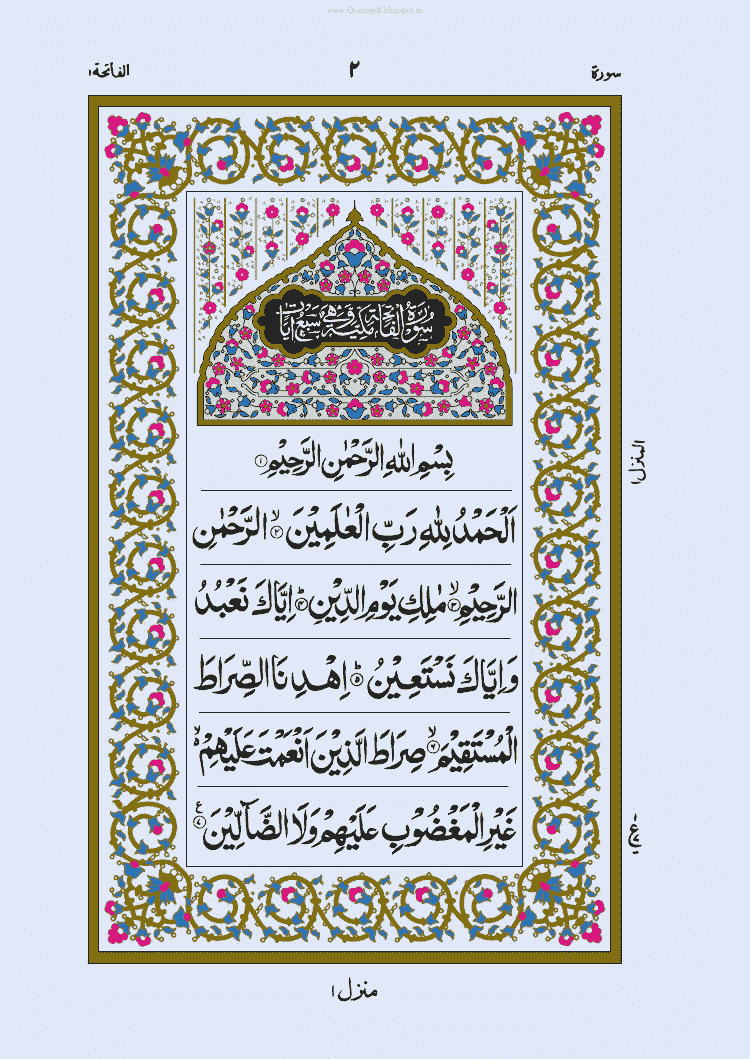 www.Quranpdf.blogspot.in
سورة ٢ الفاتحة ١
سُوْرَةُ الْفَاتِحَةِ مَكِّيَّةٌ وَّهِيَ سَبْعُ اٰيَاتٍ
بِسْمِ اللّٰهِ الرَّحْمٰنِ الرَّحِيْمِ ۝١
اَلْحَمْدُ لِلّٰهِ رَبِّ الْعٰلَمِيْنَ ۙ۝٢ الرَّحْمٰنِ
الرَّحِيْمِ ۙ۝٣ مٰلِكِ يَوْمِ الدِّيْنِ ۝٣ؕ اِيَّاكَ نَعْبُدُ
وَاِيَّاكَ نَسْتَعِيْنُ ۝٥ؕ اِهْدِنَا الصِّرَاطَ
الْمُسْتَقِيْمَ ۙ۝٦ صِرَاطَ الَّذِيْنَ اَنْعَمْتَ عَلَيْهِمْ ۙ
غَيْرِ الْمَغْضُوْبِ عَلَيْهِمْ وَلَا الضَّآلِّيْنَ ۝٧ۧ
المنزل ١
منزل ١